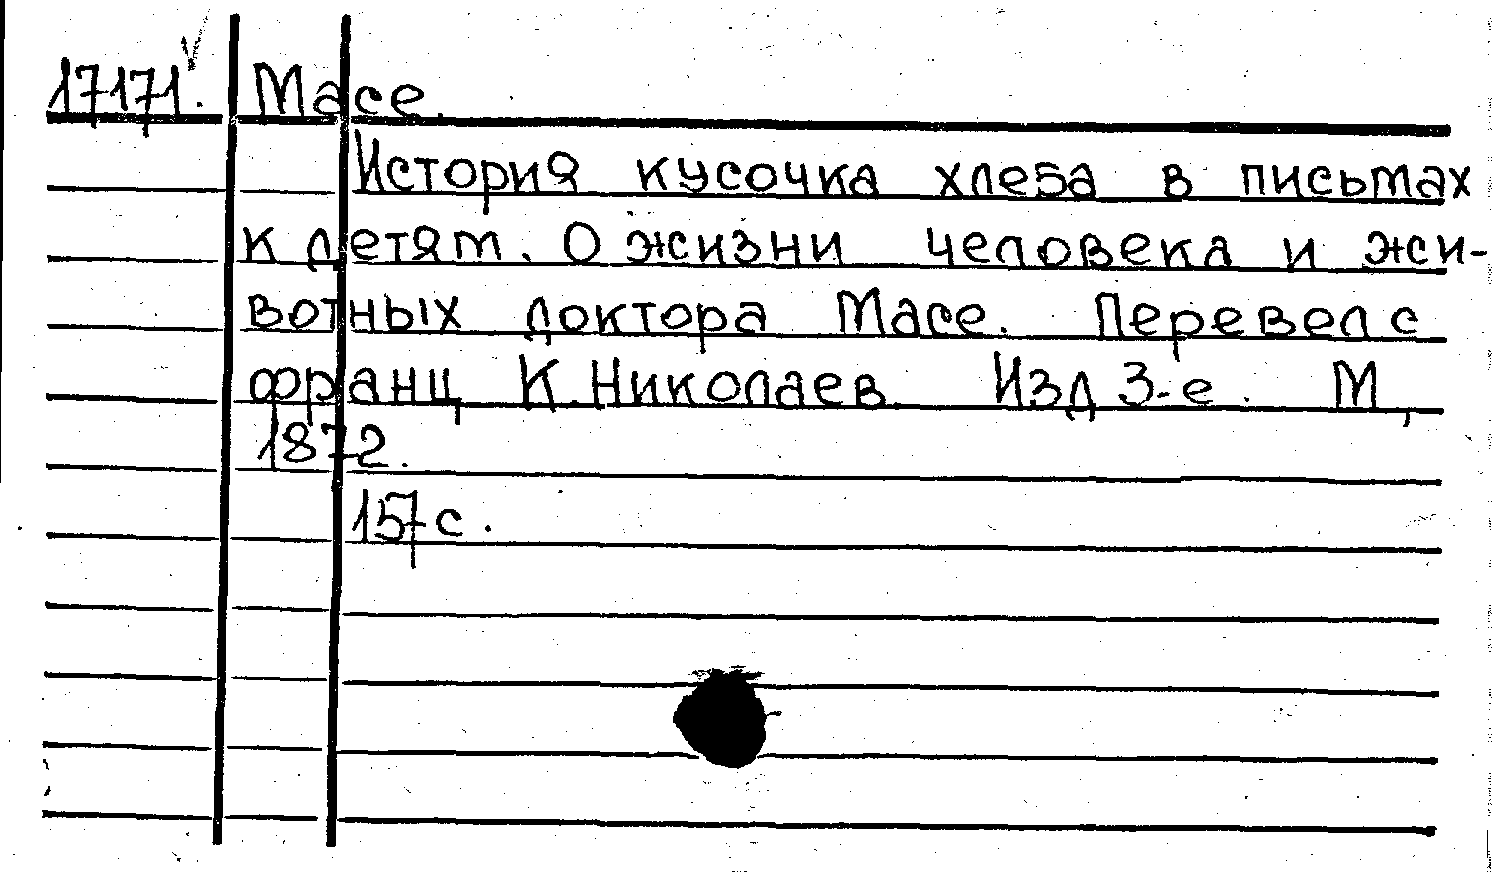 17171. Масе.
История кусочка хлеба в письмах
к детям. О жизни человека и жи-
вотных доктора Масе. Перевел с
франц К. Николаев. Изд 3-е. М,
1872.
157 с.